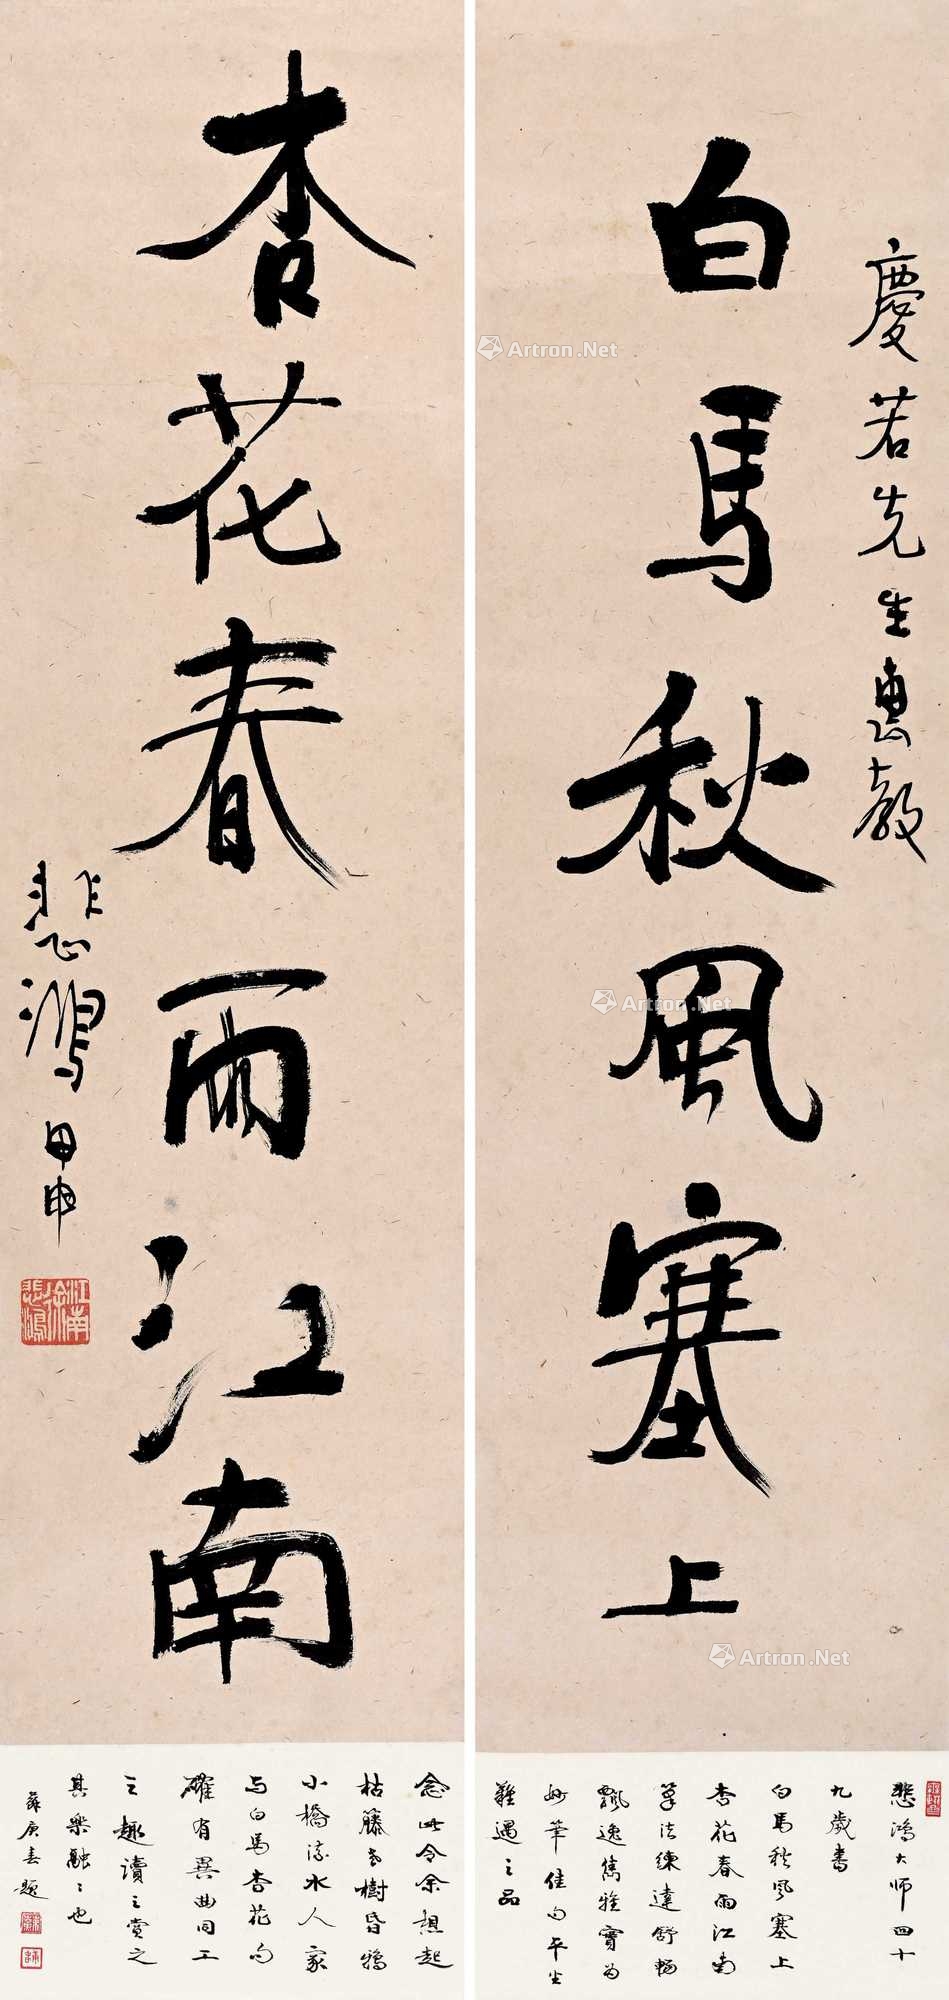 慶若先生惠教
白馬秋風塞上
杏花春雨江南
悲鴻甲申
江南徐悲鴻
悲鴻大师四十
九歲書
白馬秋風塞上
杏花春雨江南
筆法練達舒暢
飄逸雋雅實為
妙筆佳句平生
難遇之品
念此令余想起
枯籐老樹昏鴉
小橋流水人家
与白馬杏花句
確有異曲同工
之趣讀之賞之
其樂融々也
薛庚春題
Artron.Net
Artron.Net
Artron.Net